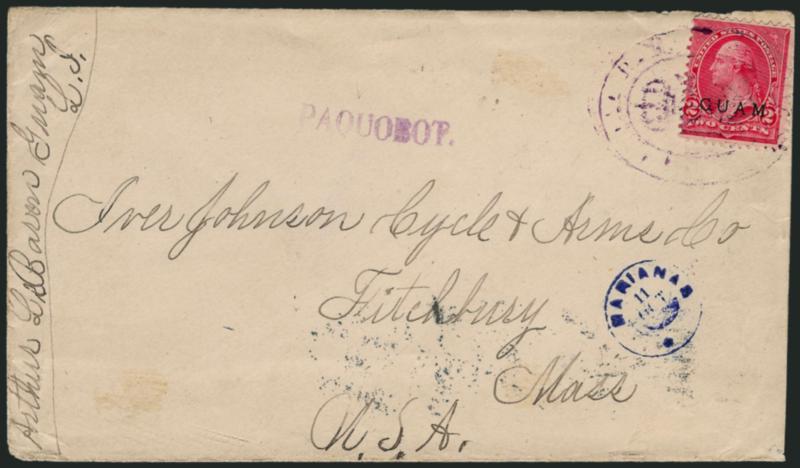 Arthur Guam
L. I.
PAQUOBOT.
UNITED STATES POSTAGE
2 2
GUAM
TWO CENTS
Iver Johnson Cycle & Arms Co
Fitchburg
Mass
U.S.A.
MARIANAS
11